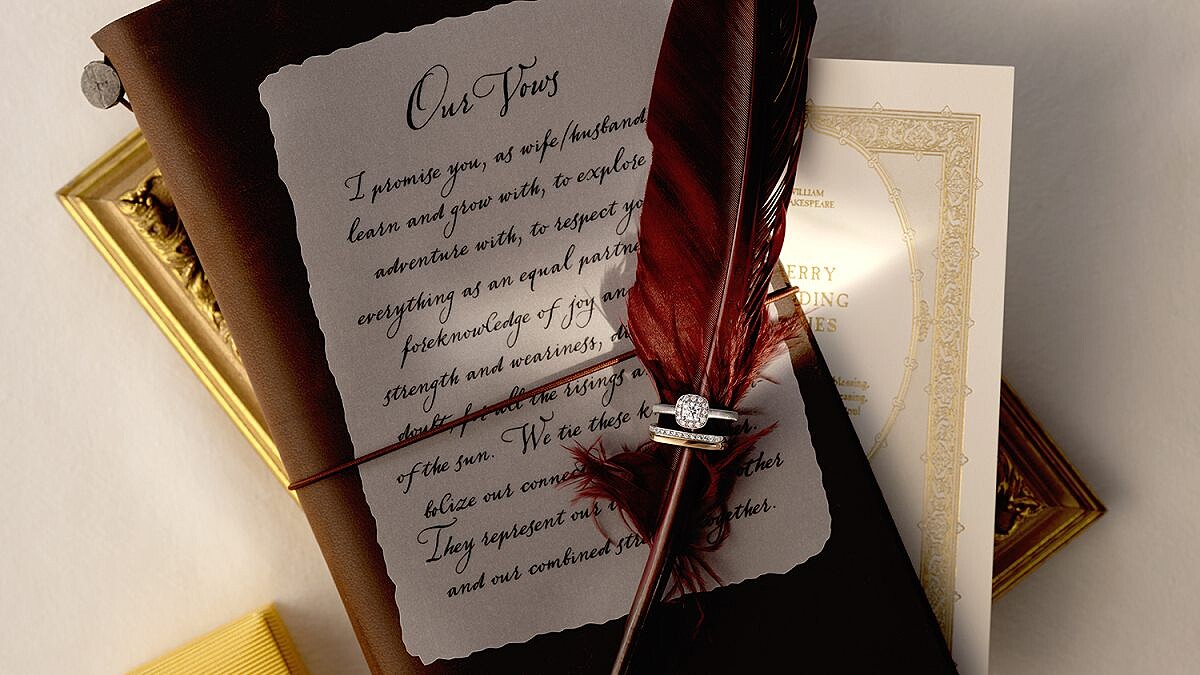 Our Vows
I promise you, as wife/husband
learn and grow with, to explore
adventure with, to respect yo
everything as an equal partne
foreknowledge of joy an
strength and weariness, di
doubt, for all the risings a
of the sun. We tie these k er.
bolize our connec other
They represent our together.
and our combined stre
WILLIAM
AKESPEARE
ERRY
DING
ES
blessing,